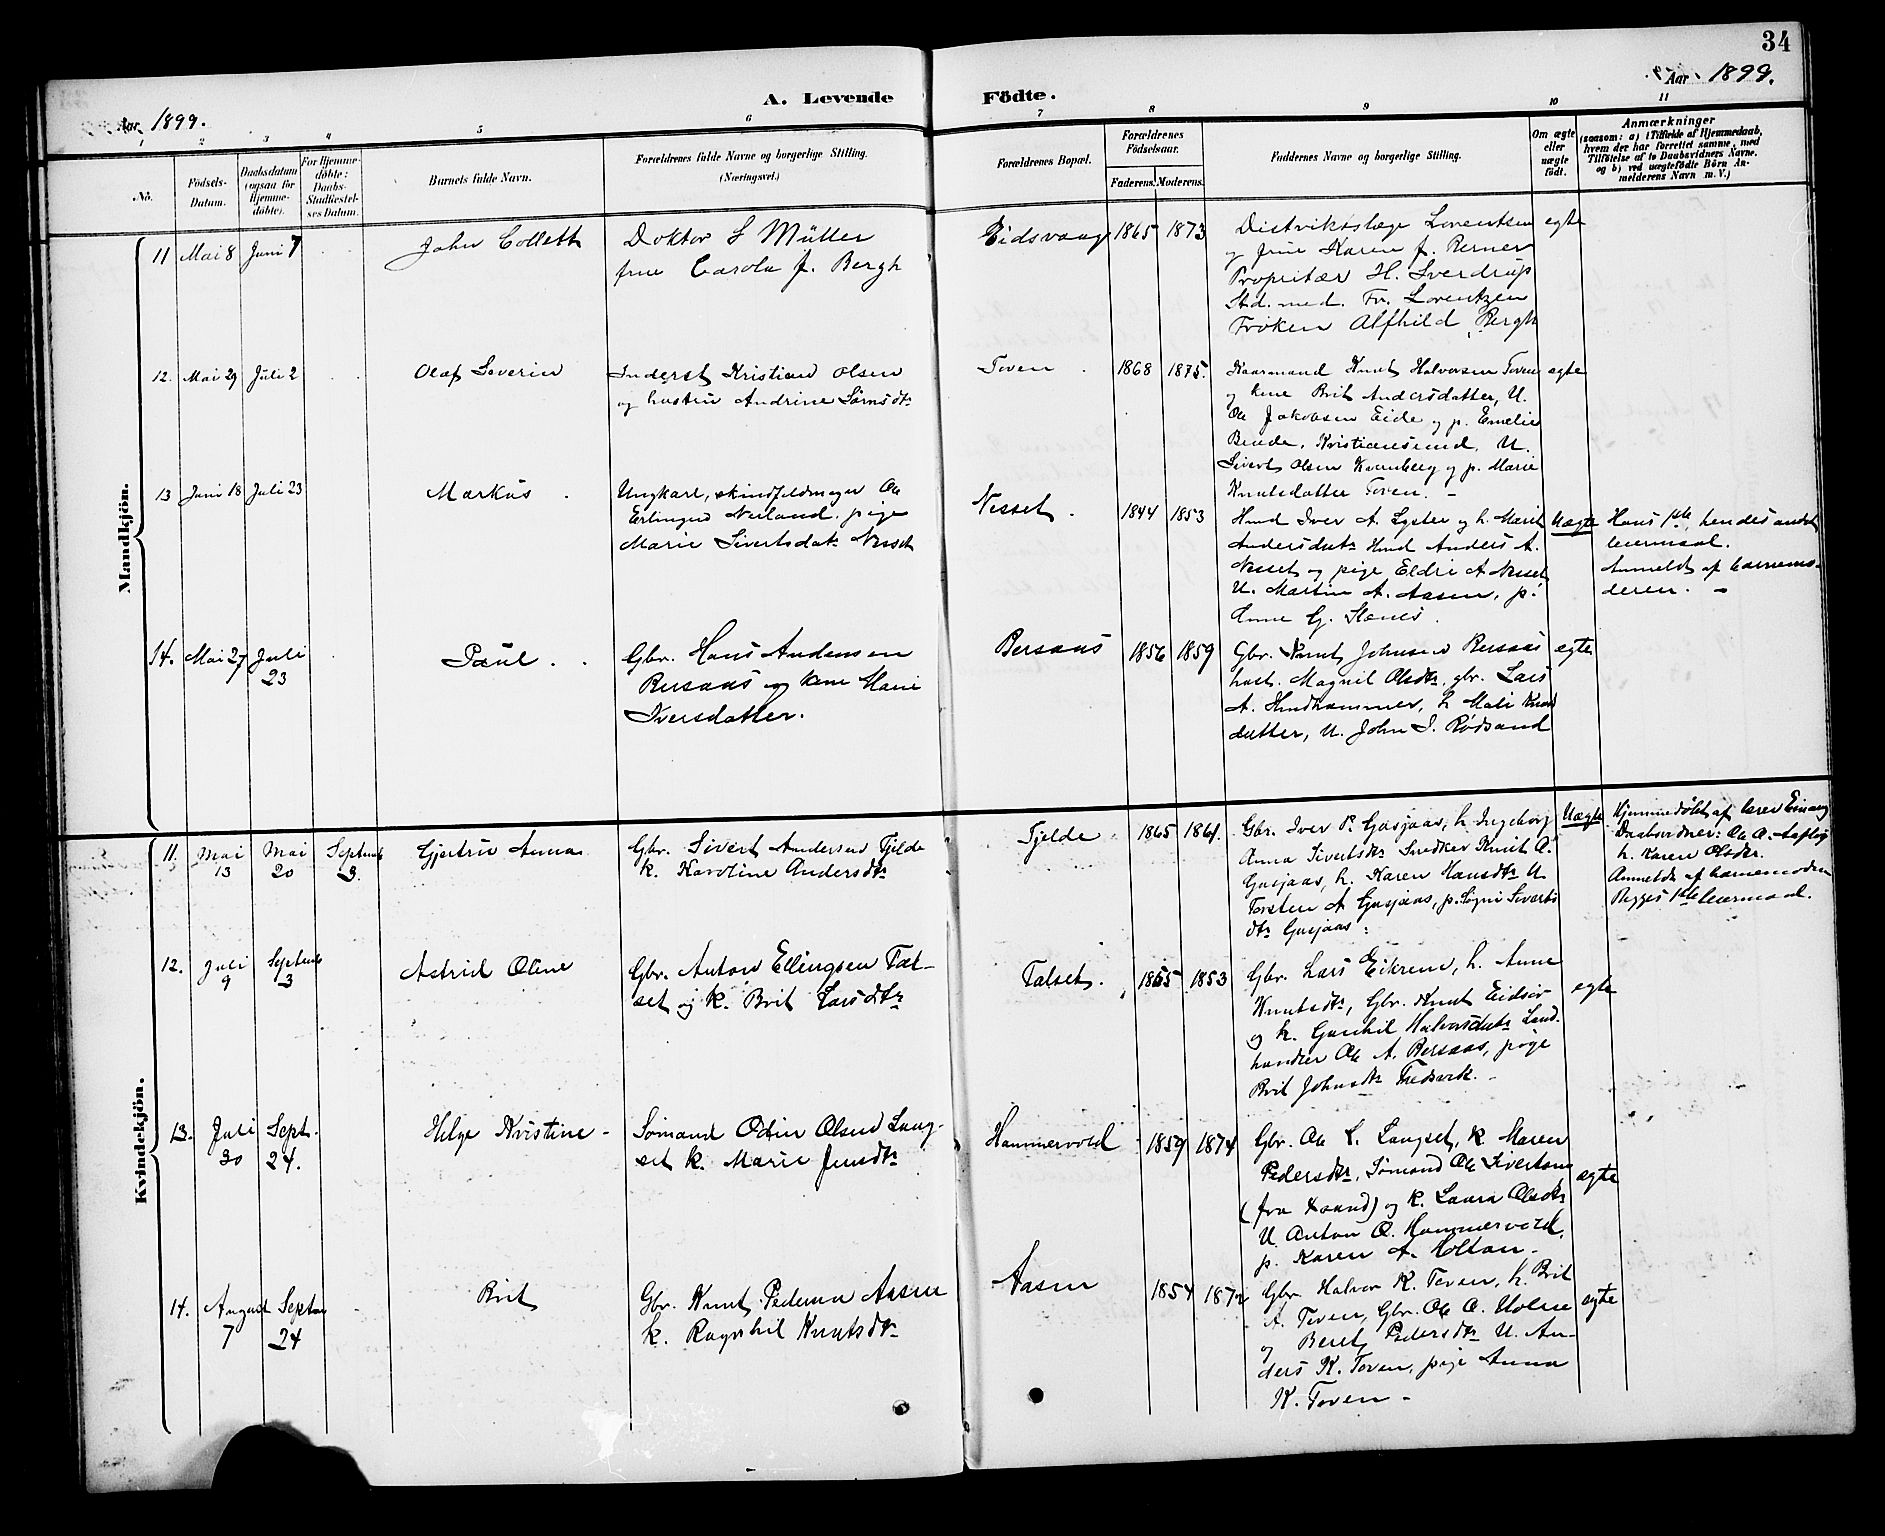 34
Aar 1899.
Aar 1899.
A. Levende Fødte.
1 2 3 4 5 6 7 8 9 10 11
No.
Födsels-Datum.
Daabsdatum (ogsaa for Hjemme-döbte).
For Hjemme-döbte: Daabs-Stadfæstel-ses Datum.
Barnets fulde Navn.
Forældrenes fulde Navne og borgerlige Stilling. (Næringsvei.)
Forældrenes Bopæl.
Forældrenes Födselsaar.
Faderens. Moderens.
Faddernes Navne og borgerlige Stilling.
Om ægte eller uægte födt.
Anmærkninger
(saasom: a) i Tilfælde af Hjemmedaab, hvem der har forrettet samme, med Tilföielse af to Daabsvidners Navne, og b) ved uægtefödte Börn Anmelderens Navn m. V.)
Mandkjön.
11 Mai 8 Juni 7 John Collett
Doktor S Müller
frue Carola f. Bergh
Eidsvaag 1865 1873
Distriktslæge Lorentsen
og frue Karen f. Berner
Propritær H. Sverdrup
Std. med. Fr. Lorentzen
Frøken Alfhild Bergh
egte
12. Mai 29 Juli 2 Olaf Severin
Inderst Kristian Olsen
og hustru Andrine Sørnsdtr
Toven 1868 1875.
Kaarmand Knut Halvorsen Toven
og kone Brit Andersdatter, U.
Ole Jakobsen Eide og p. Emelie
Kristiansund, U.
Sivert Olsen Kvernberg og p. Marie
Knutsdatter Toven. -
egte
13 Juni 18 Juli 23 Markus.
Ungkarl, skindfeldmager Ole
Erlingsen Nerland, pige
Marie Sivertsdatr Nesset
Nesset. 1844 1853
Hmd Iver A. Lyster og h. Marit
Andersdatr Hmd Anders A.
Nesset og pige Eldri A Nesset
U. Martin A. Aasen, p.
Anne G.
Uægte
Hans 1ste, hendes andet
leiermaal.
Anmeldt af barnemo-
deren. -
14. Mai 27 Juli 23 Paul.
Gbr. Hans Andersen
Bersaas og kone Marie
Iversdatter.
Bersaas 1856 1859
Gbr. Knut Johnsen Bersaas
hust. Magnil Olsdtr, gbr. Lars
A. Hindhammer, h Mali Knuds
datter, U. John I. Rødsand
egte
Kvindekjön.
11. Mai 13 Mai 20 Septemb 3. Gjertru Anna
Gbr. Sivert Andersen Tjelde
k. Karoline Andersdtr
Tjelde 1865 1864.
Gbr. Iver P. Gusjaas, h. Ingeborg
Anna Sivertsdtr Snedker Knut A.
Gusjaas, h. Karen Hansdtr U
Torsten A Gusjaas, p. Signi Siverts
dtr Gusjaas.
Uægte
Hjemmedøbt af lærer Einang
Daabsvidner: Ole O.
h. Karen Olsdtr.
Anmeldt af barnemoderen
Begges 1ste leiermaal.
12. Juli 9 Septemb 3 Astrid Oline
Gbr. Anton Ellingsen Tal-
set og k. Brit Larsdtr
Talset. 1865 1853
Gbr. Lars Eikrem, h. Anne
Knutsdtr, Gbr. Knut Eidsør
og k. Gunhil Halvorsdatr Land-
handler Ole A. Bersaas, pige
Brit Johnsdtr Tredsvik. -
egte
13. Juli 30 Sept. 24. Helge Kristine -
Sømand Odin Olsen Lang-
set k. Marie Jensdtr
Hammervold 1859 1874
Gbr. Ole L. Langset, k Maren
Pedersdtr, Sømand Ole Sivertsen
og k. Laura Olsdtr
U Anton O. Hammervold,
p. Karen A. Holtan -
egte
14. August 7 Septem 24 Brit
Gbr. Knut Pedersen Aasen
k. Ragnhil Knutsdtr
Aasen 1854 1872
Gbr. Halvor K. Toven, h. Brit
A. Toven, Gbr. Ole O. Holm
og Beret Pedersdtr U. An-
ders K. Toven, pige Anna
K. Toven -
egte